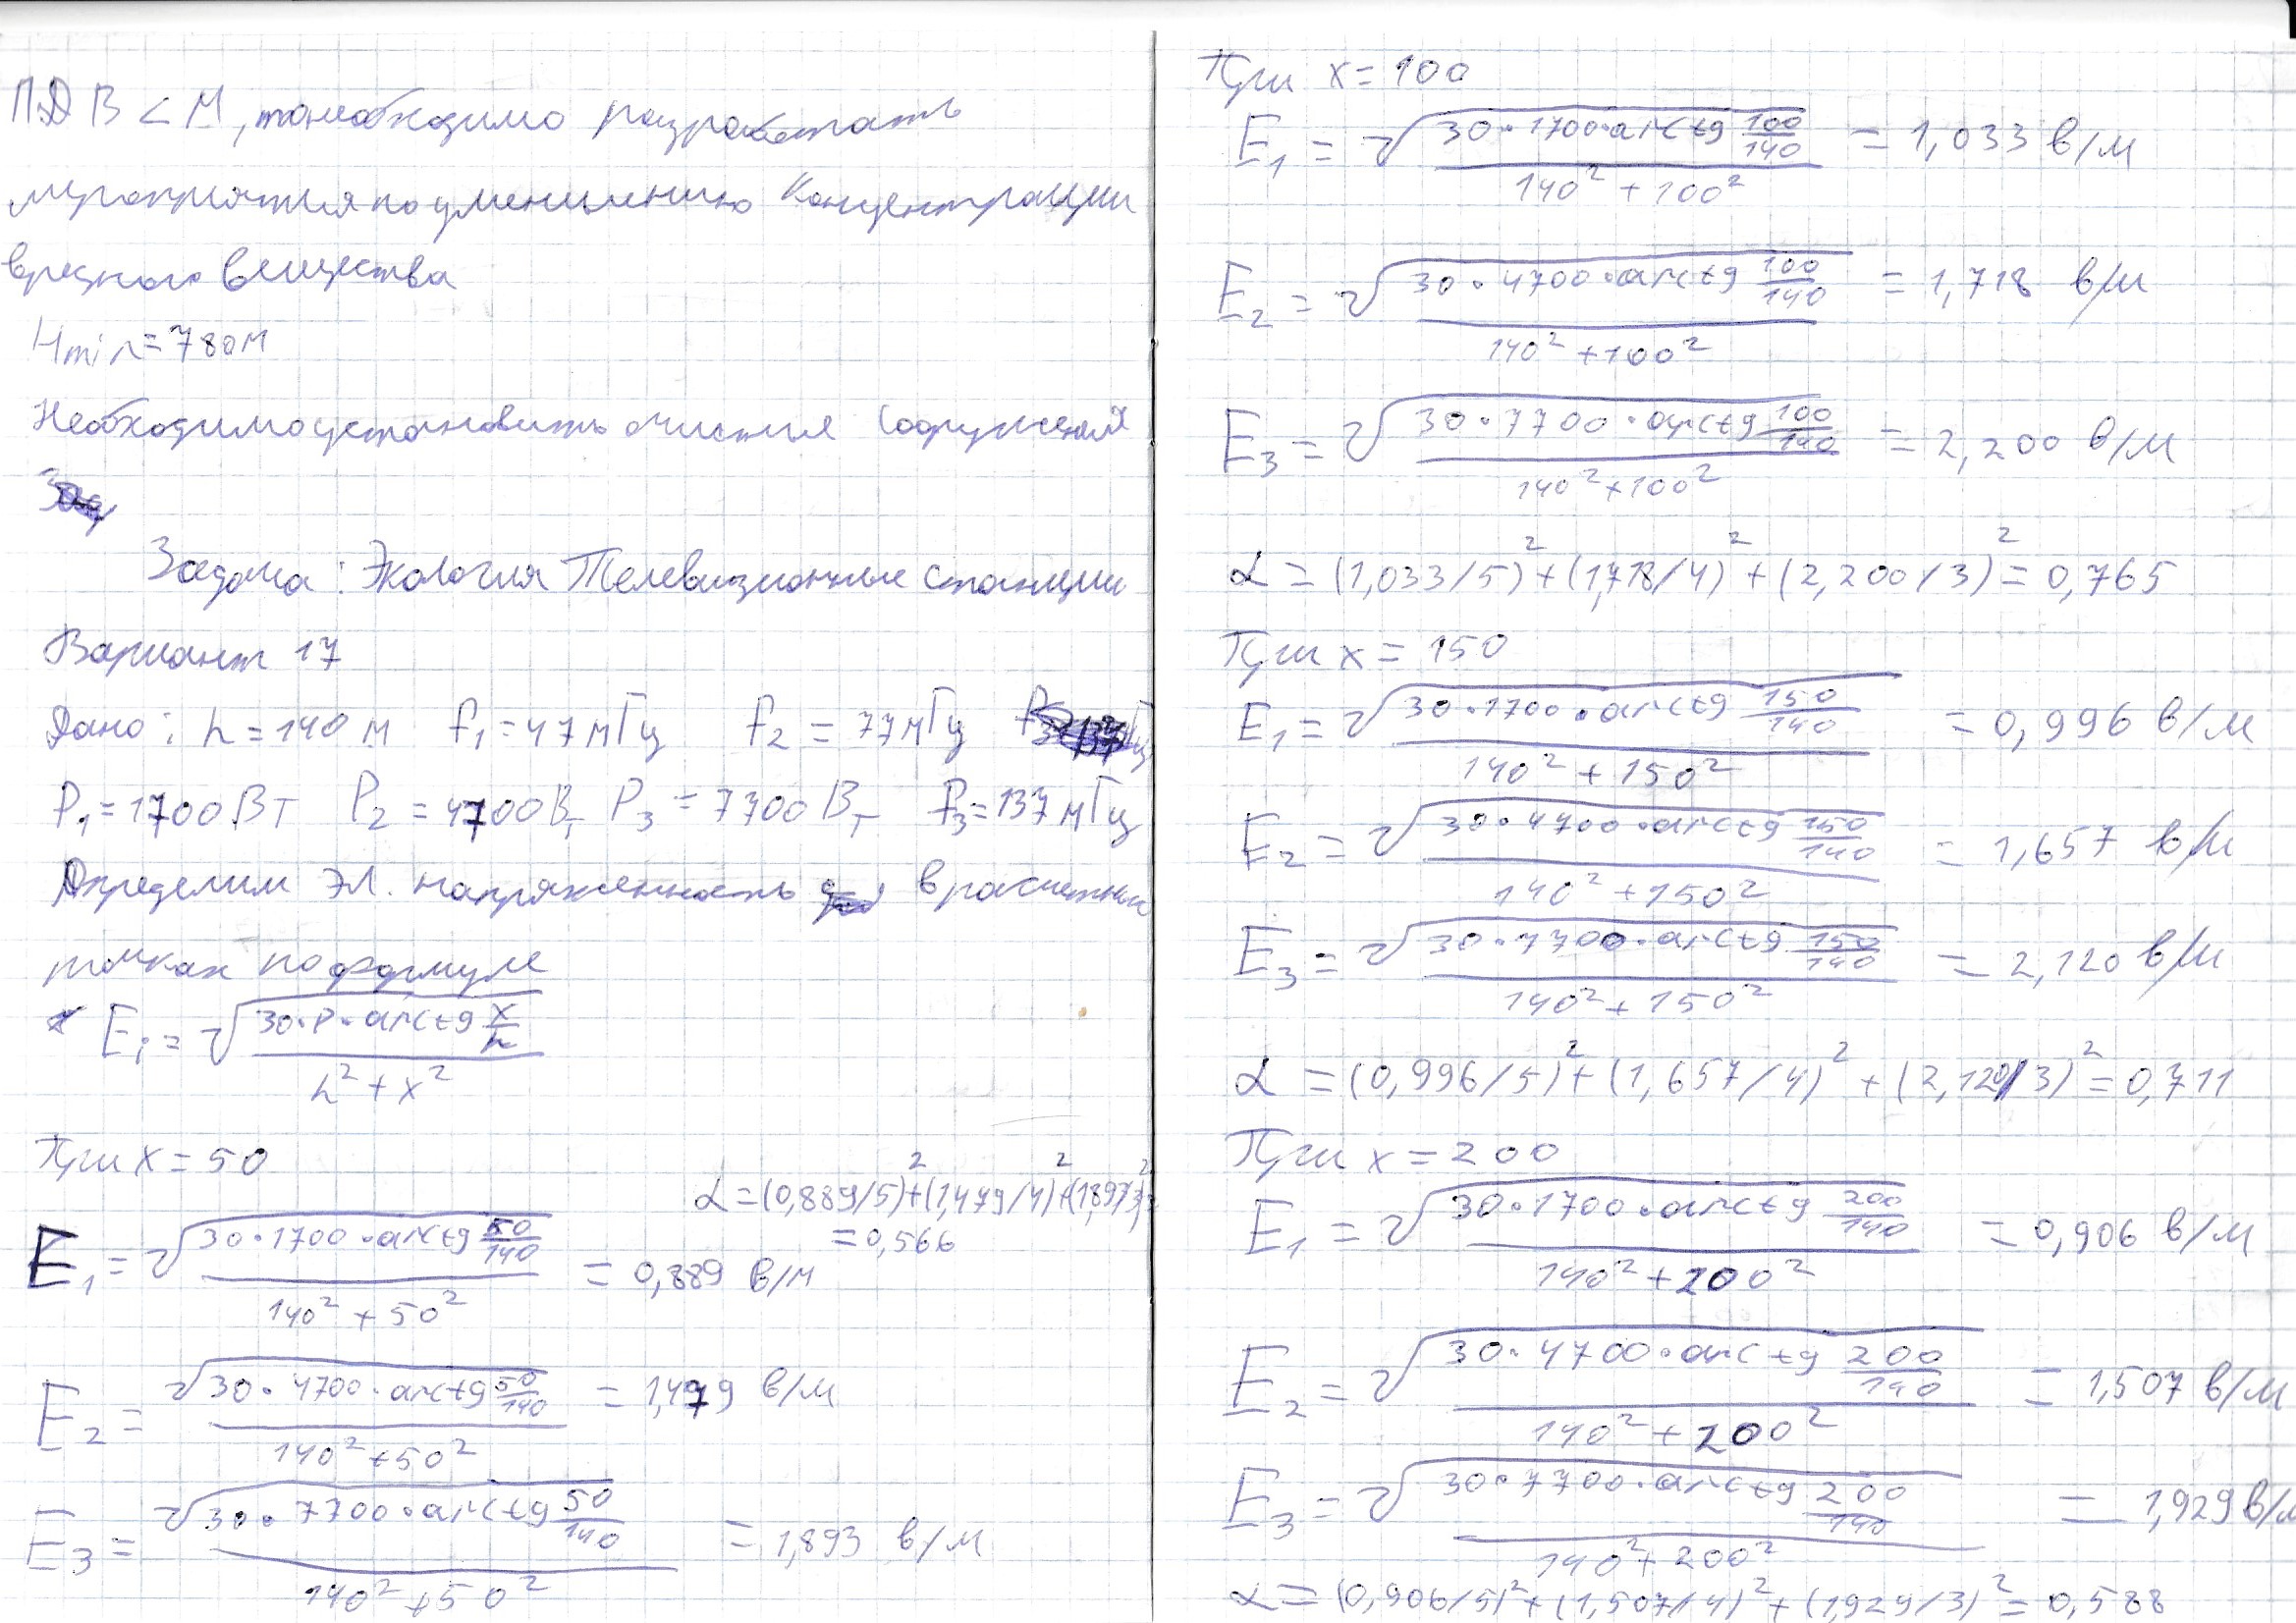 ПДВ < М, то необходимо разработать
мероприятия по уменьшению концентрации
вредного вещества
Hmin = 780м
Необходимо установить очистные сооружения
Задача: Экология Телевизионные станции
Вариант 17
Дано: h = 140 м f₁ = 47 мГц f₂ = 77 мГц
P₁ = 1700 Вт P₂ = 4700 Вт P₃ = 7700 Вт f₃ = 137 мГц
Определим эл. напряженность в расчетных
точках по формуле
Eᵢ = √(30·P·arctg x/h) / (h² + x²)
При x = 50
α = (0,889/5)² + (1,479/4)² + (1,893/3)²
= 0,566
E₁ = √(30·1700·arctg 50/140) / (140² + 50²) = 0,889 в/м
E₂ = √(30·4700·arctg 50/140) / (140² + 50²) = 1,479 в/м
E₃ = √(30·7700·arctg 50/140) / (140² + 50²) = 1,893 в/м
При x = 100
E₁ = √(30·1700·arctg 100/140) / (140² + 100²) = 1,033 в/м
E₂ = √(30·4700·arctg 100/140) / (140² + 100²) = 1,718 в/м
E₃ = √(30·7700·arctg 100/140) / (140² + 100²) = 2,200 в/м
α = (1,033/5)² + (1,718/4)² + (2,200/3)² = 0,765
При x = 150
E₁ = √(30·1700·arctg 150/140) / (140² + 150²) = 0,996 в/м
E₂ = √(30·4700·arctg 150/140) / (140² + 150²) = 1,657 в/м
E₃ = √(30·7700·arctg 150/140) / (140² + 150²) = 2,120 в/м
α = (0,996/5)² + (1,657/4)² + (2,120/3)² = 0,711
При x = 200
E₁ = √(30·1700·arctg 200/140) / (140² + 200²) = 0,906 в/м
E₂ = √(30·4700·arctg 200/140) / (140² + 200²) = 1,507 в/м
E₃ = √(30·7700·arctg 200/140) / (140² + 200²) = 1,929 в/м
α = (0,906/5)² + (1,507/4)² + (1,929/3)² = 0,588